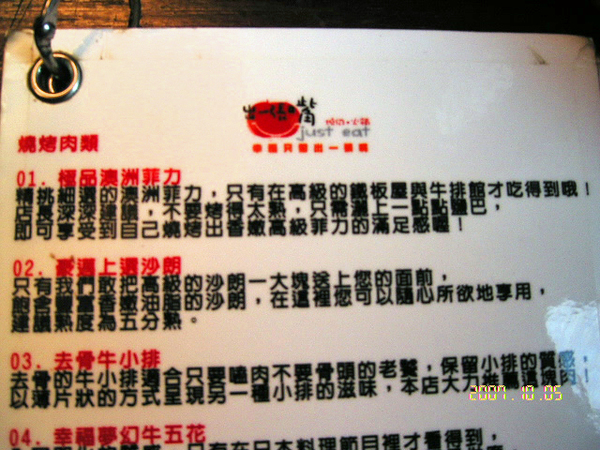 just eat
幸福只要出一張嘴
燒烤肉類
01. 極品澳洲菲力
精挑細選的澳洲菲力，只有在高級的鐵板屋與牛排館才吃得到哦！
店長深深建議，不要烤得太熟，只需灑上一點點鹽巴，
即可享受到自己燒烤出香嫩高級菲力的滿足感喔！
02. 豪邁上選沙朗
只有我們敢把高級的沙朗一大塊送上您的面前，
飽含豐富香嫩油脂的沙朗，在這裡您可以隨心所欲地享用，
建議熟度為五分熟。
03. 去骨牛小排
去骨的牛小排適合只要嗑肉不要骨頭的老饕，保留小排的質感，
以薄片狀的方式呈現另一種小排的滋味，本店大力推薦
2007.10.05
04. 幸福夢幻牛五花
只有在日本料理節目裡才看得到，